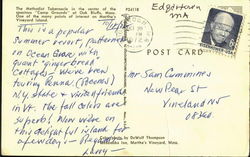 The Methodist Tabernacle in the center of the
spacious "Camp Grounds" at Oak Bluffs, Mass.
One of the many points of interest on Martha's
Vineyard Island.
P24118
Edgartown
MA
This is a popular
Summer resort, patterned
on Ocean Grove with
quaint "ginger bread"
Cottages - We've been
touring Penna. (Poconos)
N.Y. State & visited friends
in Vt. The fall colors are
superb! Now we're on
this delightful island for
a few days - Regards
POST CARD
Mr Sam Cummings
New Pear St
Vineland NJ
08360
DeWolf Thompson
Martha's Vineyard, Mass.